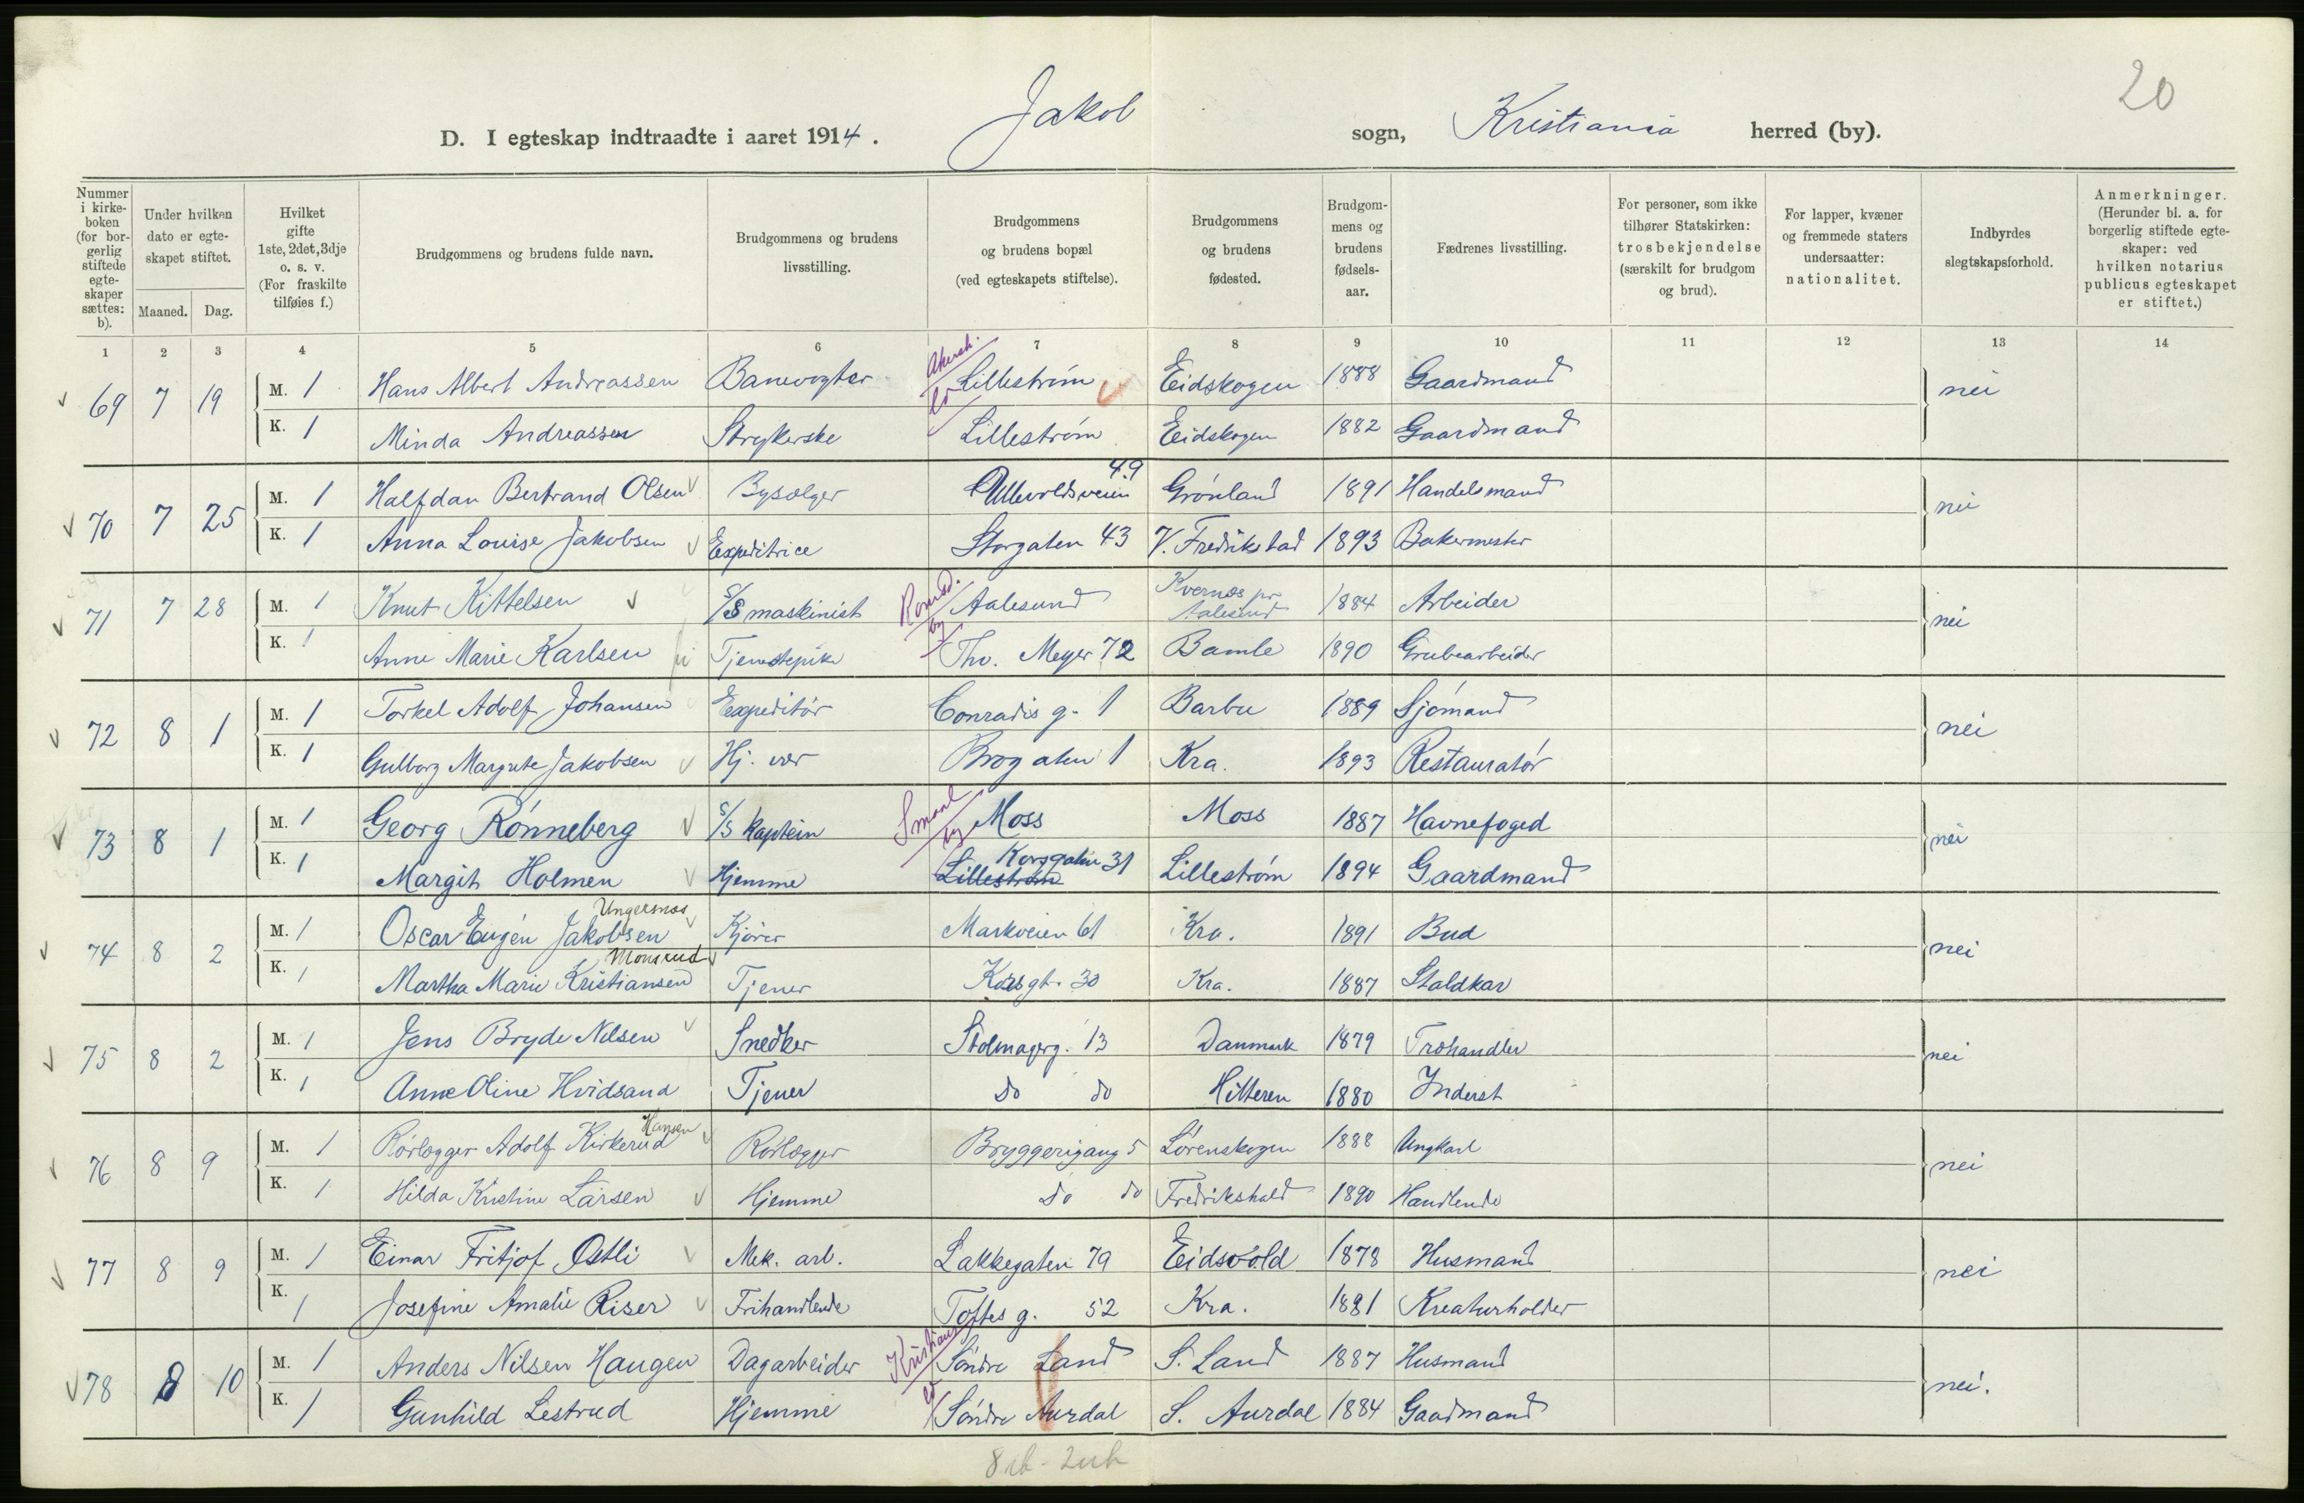 20
D. I egteskap indtraadte i aaret 1914. Jakob sogn, Kristiania herred (by).
Nummer i kirkeboken (for borgerlig stiftede egteskaper sættes: b).
Under hvilken dato er egteskapet stiftet.
Maaned. Dag.
Hvilket gifte 1ste, 2det, 3dje o. s. v. (For fraskilte tilføies f.)
Brudgommens og brudens fulde navn.
Brudgommens og brudens livsstilling.
Brudgommens og brudens bopæl (ved egteskapets stiftelse).
Brudgommens og brudens fødested.
Brudgommens og brudens fødselsaar.
Fædrenes livsstilling.
For personer, som ikke tilhører Statskirken: trosbekjendelse (særskilt for brudgom og brud).
For lapper, kvæner og fremmede staters undersaatter: nationalitet.
Indbyrdes slegtskapsforhold.
Anmerkninger. (Herunder bl. a. for borgerlig stiftede egteskaper: ved hvilken notarius publicus egteskapet er stiftet.)
1 2 3 4 5 6 7 8 9 10 11 12 13 14
Akersh.
69 7 19 M. 1 Hans Albert Andreassen Banevogter Lillestrøm Eidskogen 1888 Gaardmand nei
K. 1 Minda Andreassen Strykerske Lillestrøm Eidskogen 1882 Gaardmand
70 7 25 M. 1 Halfdan Bertrand Olsen Bysælger Ullevoldsveien 49 Grønland 1891 Handelsmand nei
K. 1 Anna Louise Jakobsen Expeditrice Storgaten 43 V. Fredrikstad 1893 Bakermester
71 7 28 M. 1 Knut Kittelsen S/S maskinist Romsd. by Aalesund Kvernes pr Aalesund 1884 Arbeider nei
K. 1 Anne Marie Karlsen Tjenestepike Thv. Meyer 72 Bamle 1890 Grubearbeider
72 8 1 M. 1 Torkel Adolf Johansen Expeditør Conradis g. 1 Barbu 1889 Sjømand nei
K. 1 Gulborg Margrete Jakobsen Hj. vær Brogaten 1 Kra. 1893 Restauratør
73 8 1 M. 1 Georg Rønneberg S/S kaptein Smaal by Moss Moss 1887 Havnefoged nei
K. 1 Margit Holmen Hjemme Lillestrøm Korsgaten 31 Lillestrøm 1894 Gaardmand
Ungersnes
74 8 2 M. 1 Oscar Eugén Jakobsen Kjører Markveien 61 Kra. 1891 Bud nei
Monsrud
K. 1 Martha Marie Kristiansen Tjener Korsgt. 30 Kra. 1887 Staldkar
75 8 2 M. 1 Jens Bryde Nilsen Snedker Stolmagerg. 13 Danmark 1879 Træhandler nei
K. 1 Anne Oline Hvidsand Tjener do do Hitteren 1880 Inderst
Hansen
76 8 9 M. 1 Rørlægger Adolf Kirkerud Rørlægger Bryggerigang 5 Lørenskogen 1888 Ungkarl nei
K. 1 Hilda Kristine Larsen Hjemme do do Fredrikshald 1890 Handlende
77 8 9 M. 1 Einar Fritjof Østli Mek. arb. Lakkegaten 79 Eidsvold 1878 Husmand nei
K. 1 Josefine Amalie Riser Frihandlende Toftes g. 52 Kra. 1881 Kreaturholder
Kristians
78 8 10 M. 1 Anders Nilsen Haugen Dagarbeider Søndre Land S. Land 1887 Husmand nei.
K. 1 Gunhild Lestrud Hjemme Søndre Aurdal S. Aurdal 1884 Gaardmand